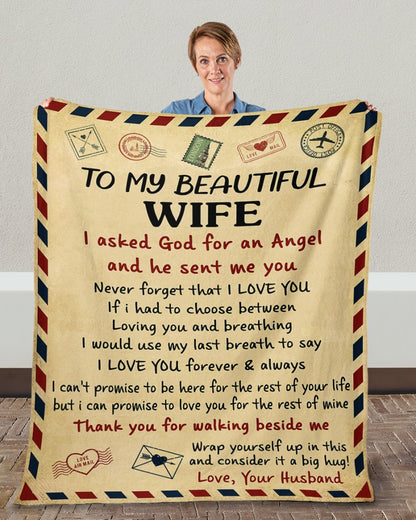 LOVE MAIL
POST MAIL
TO MY BEAUTIFUL
WIFE
I asked God for an Angel
and he sent me you
Never forget that I LOVE YOU
If i had to choose between
Loving you and breathing
I would use my last breath to say
I LOVE YOU forever & always
I can't promise to be here for the rest of your life
but i can promise to love you for the rest of mine
Thank you for walking beside me
LOVE
AIR MAIL
Wrap yourself up in this
and consider it a big hug!
Love, Your Husband